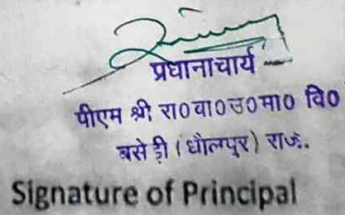 प्रधानाचार्य
पीएम श्री रा०वा०उ०मा० वि०
बसेड़ी (धौलपुर) राज.
Signature of Principal